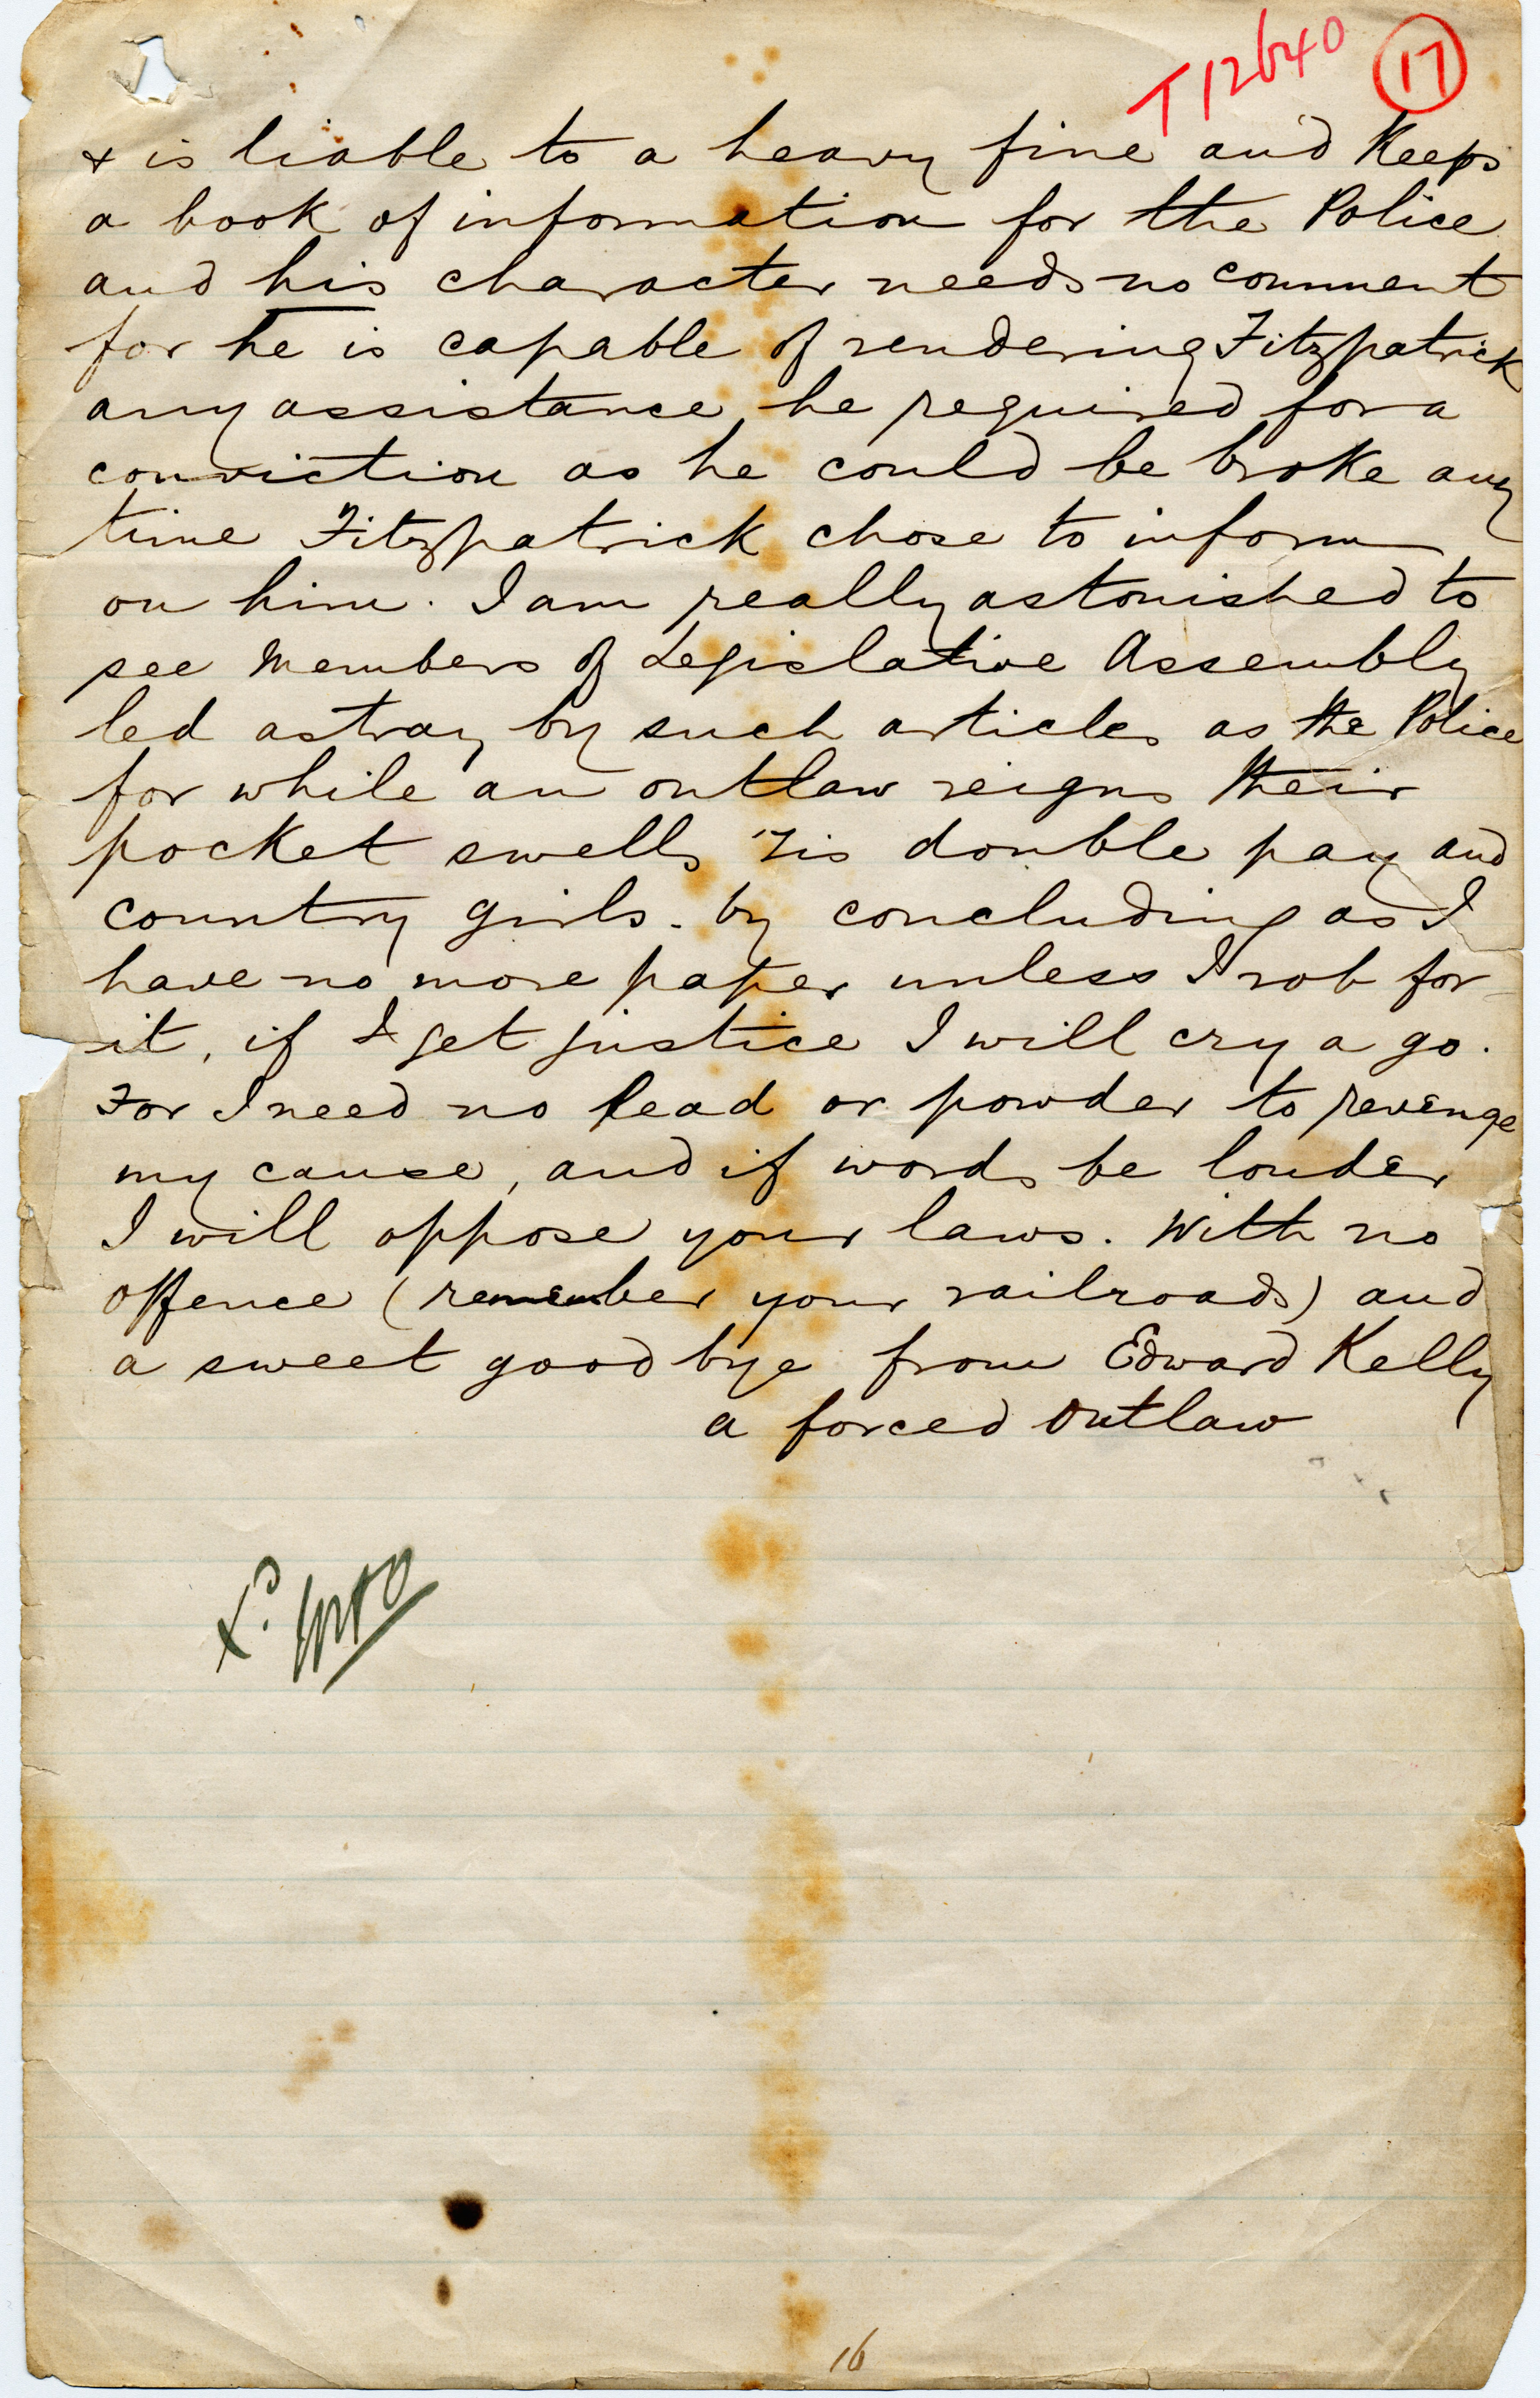 T12640 17
& is liable to a heavy fine and Keeps
a book of information for the Police
and his character needs no comment
for he is capable of rendering Fitzpatrick
any assistance he required for a
conviction as he could be broke any
time Fitzpatrick chose to inform
on him. I am really astonished to
see Members of Legislative Assembly
led astray by such articles as the Police
for while an outlaw reigns their
pocket swells 'Tis double pay and
country girls. by concluding as I
have no more paper unless I rob for
it, if I get justice I will cry a go.
For I need no lead or powder to revenge
my cause, and if words be louder
I will oppose your laws. With no
offence (remember your railroads) and
a sweet good bye from Edward Kelly
a forced outlaw
16